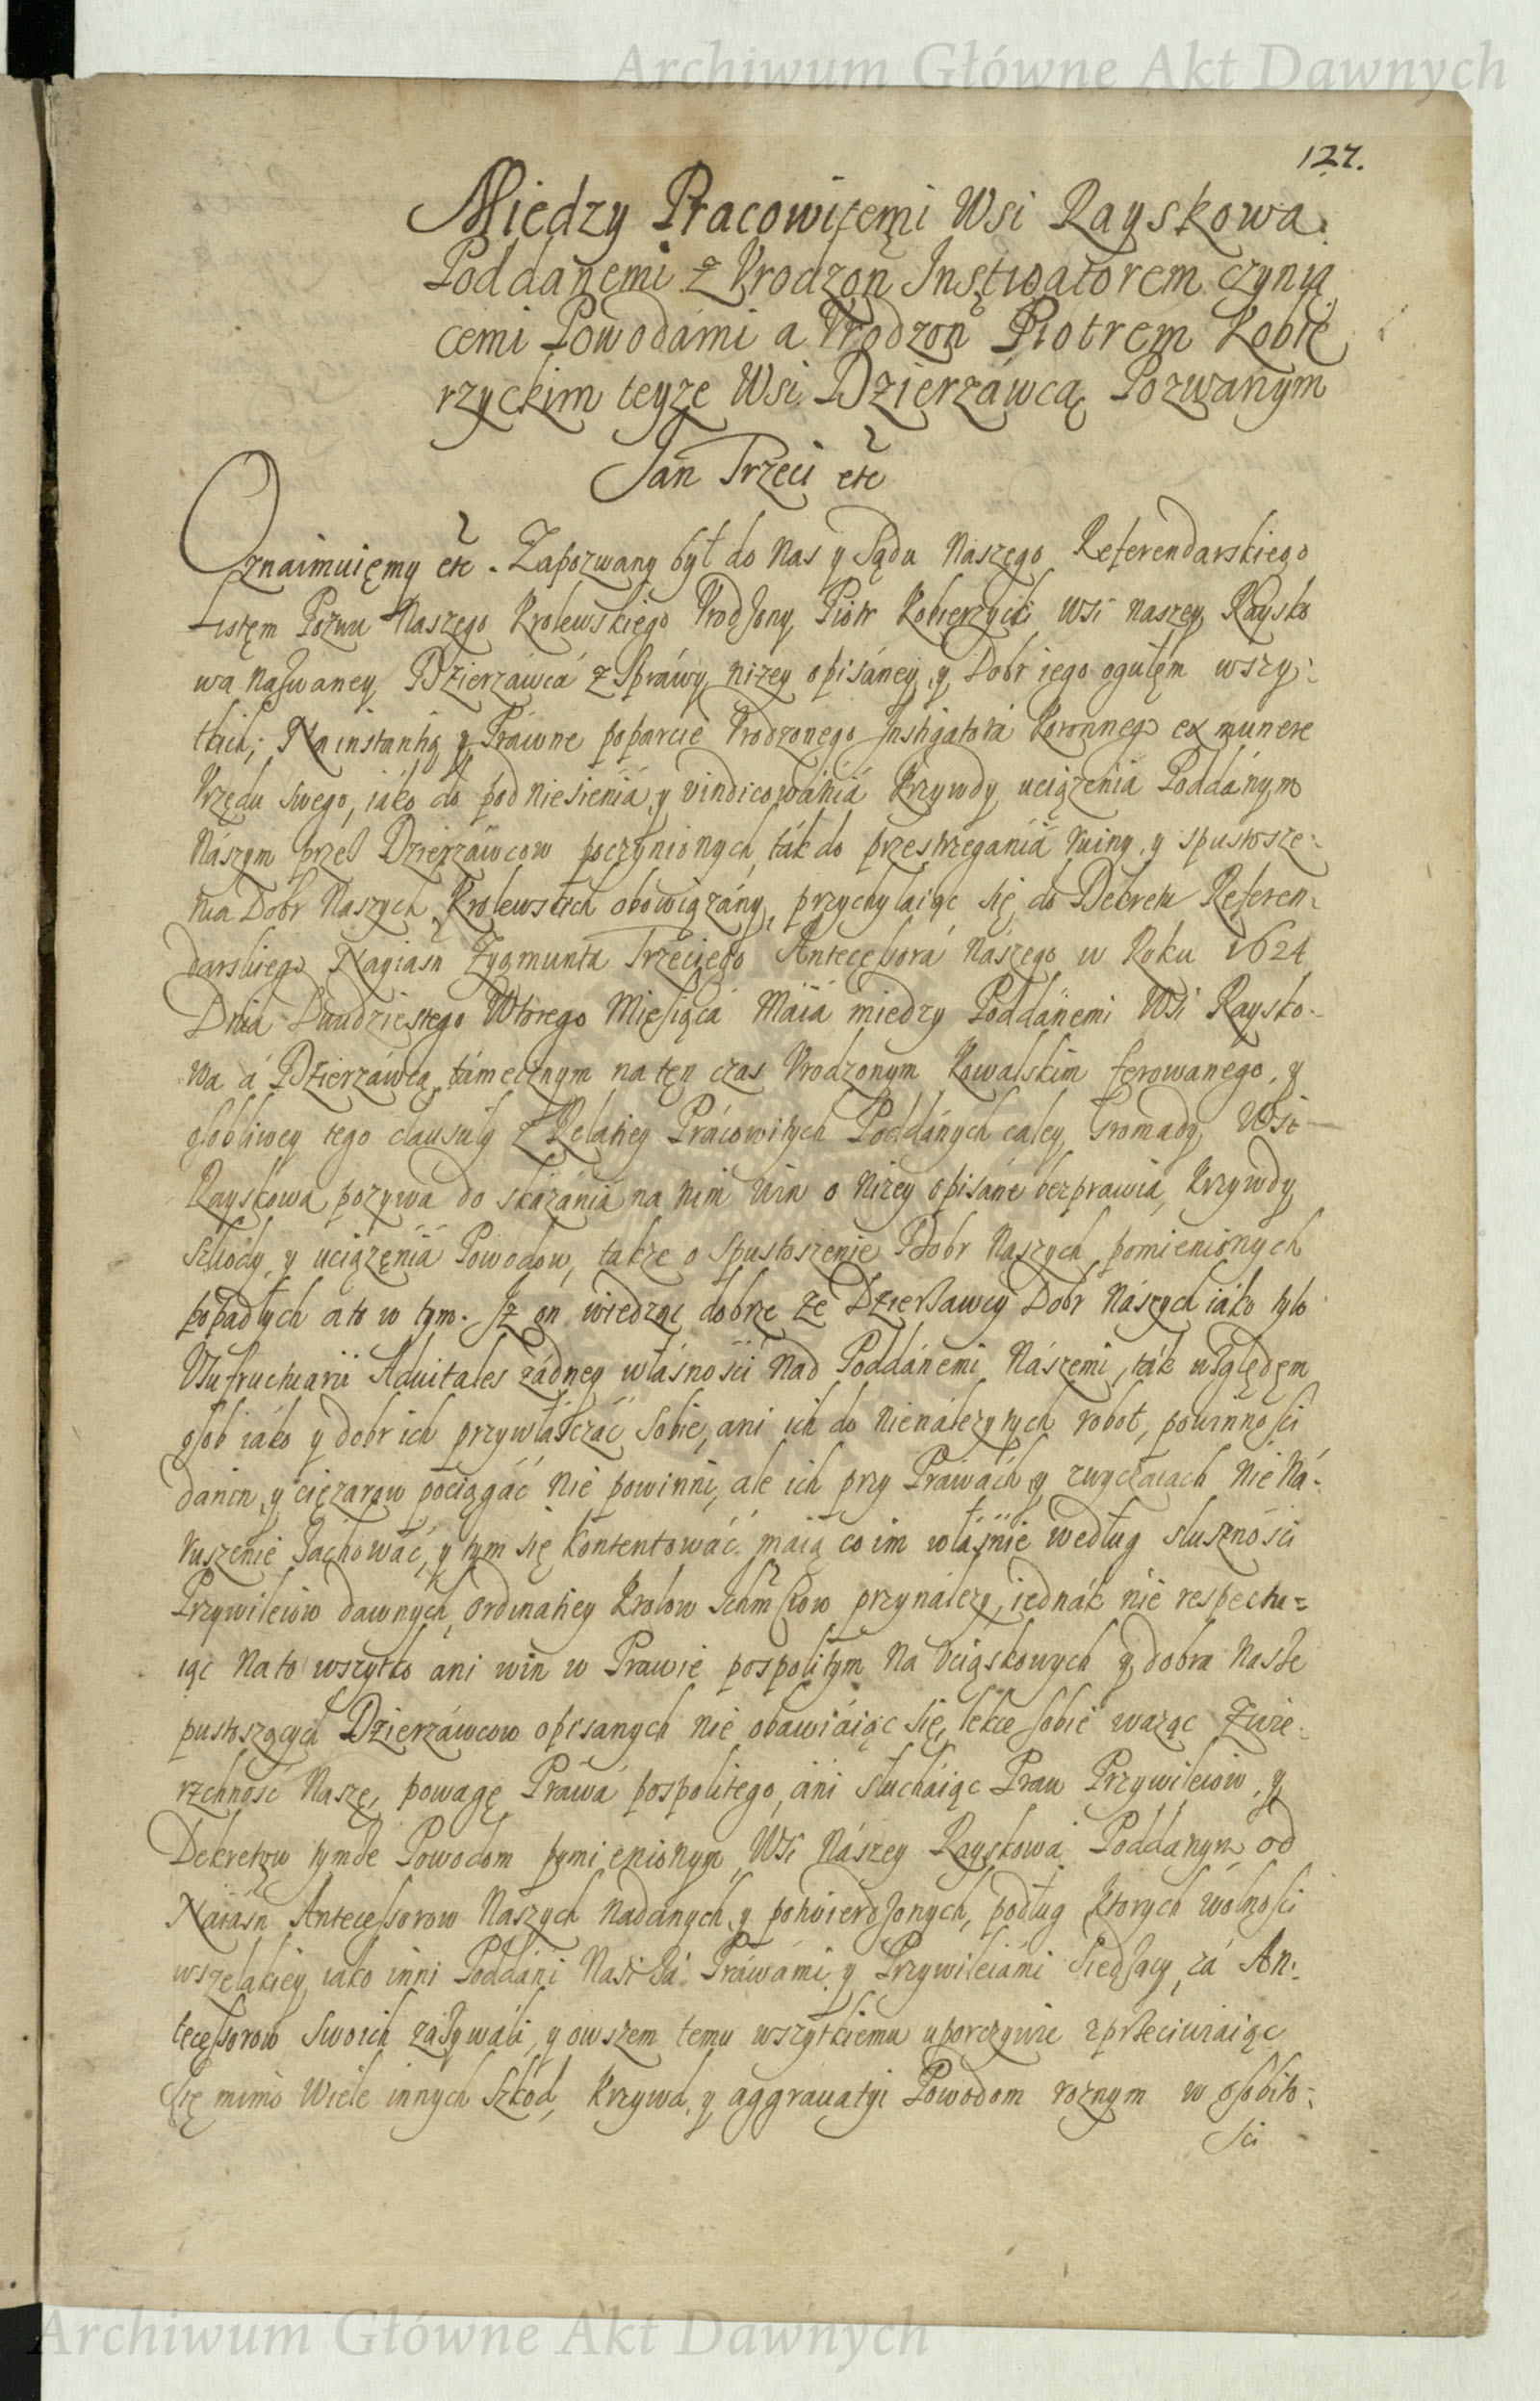 Archiwum Główne Akt Dawnych
127.
Miedzy Pracowitemi Wsi Rayskowa
Poddanemi z Vrodzon Instigatorem czynią
cemi Powodami a Vrodzon Piotrem Kobie
rzyckim teyze Wsi Dzierzáwcą Pozwanym
Jan Trzeci etc
Oznaimuięmy etc. Zapozwany był do Nas y Sądu Naszego Referendarskiego
Listem Pozwu Naszego Krolewskiego Vrodzony Piotr Kobierzycki Wsi naszey Raysko
wa nazwaney Dzierzáwcá z Spráwy nizey opisáney, y Dobr iego ogułem wszy:
tkich; Na instantią y Práwne poparcie Vrodzonego Instigatora Koronneg ex munere
Vrzędu swego, iáko do podniesieniá y vindicowániá Krzywdy uciązenia Poddánym
Nászym przez Dzierzáwcow poczynionych, ták do przestrzegániá ruiny y spustosze:
nia Dobr Naszych Krolewskich obowiązány, przychylaiąc się do Dekretu Referen:
darskiego Nayiasn Zygmunta Trzeciego Antecessorá Nászego w Roku 1624
Dnia Dwudziestego Wtorego Miesiącá Máiá miedzy Poddánemi Wsi Raysko:
wa á Dzierzáwcą támecznym na tęn czas Vrodzonym Kowalskim ferowanego, y
osobliwey tego clausuły z Relatiey Prácowitych Poddánych całey Gromady Wsi
Rayskowa pozywa do skazániá na nim win o nizey opisáne bezprawia, Krzywdy
Szkody, y uciązęniá Powodow, takze o Spustoszenie Dobr Naszych pomienionych
popadłych a to w tym. Jz on wiedząc dobrze ze Dzierzawcy Dobr Nászych iáko tylo
Vsufructuarii Aduitales zádney włásności Nad Poddánemi Nászemi, ták względęm
osob iáko y dobr ich przywłászczáć sobie, ani ich do nienálezytych robot, powinności
danin, y cięzarow pociągáć nie powinni, ale ich przy Práwách y zwyczaiach Nie Ná:
ruszenie Záchowáć, y tym się Kontentowáć máią co im włáśnie według słuszności
Przywileiow dawnych, Ordinatiey Krolow Ichm̃ciow przynalezy, iednák nie respectu=
iąc Na to wszytko ani win w Prawie pospolitym Na Vciąskowych y dobra Nasze
pustoszących Dzierzáwcow opisanych nie obawiáiąc się, lekce sobie ważąc Zwie:
rzchność Naszę, powagę Práwá pospolitego, ani słucháiąc Praw Przywileiow, y
Dekretow tymze Powodom pomienionym, Wsi Nászey Rayskowa Poddanym od
Naiásn Antecessorow Naszych Nadanych y potwierdzonych, podług Ktorych wolności
wszelakiey iako inni Poddáni Nasi zá Práwámi y Przywileiámi siedzący, zá An:
tecęssorow swoich záżywáli, y owszem temu wszytkiemu uporczywie zprzeciwiaiąc
się mimo Wiele innych Szkod, Krzywd, y aggrauatyi Powodom roznym w osobito:
sci
Archiwum Główne Akt Dawnych